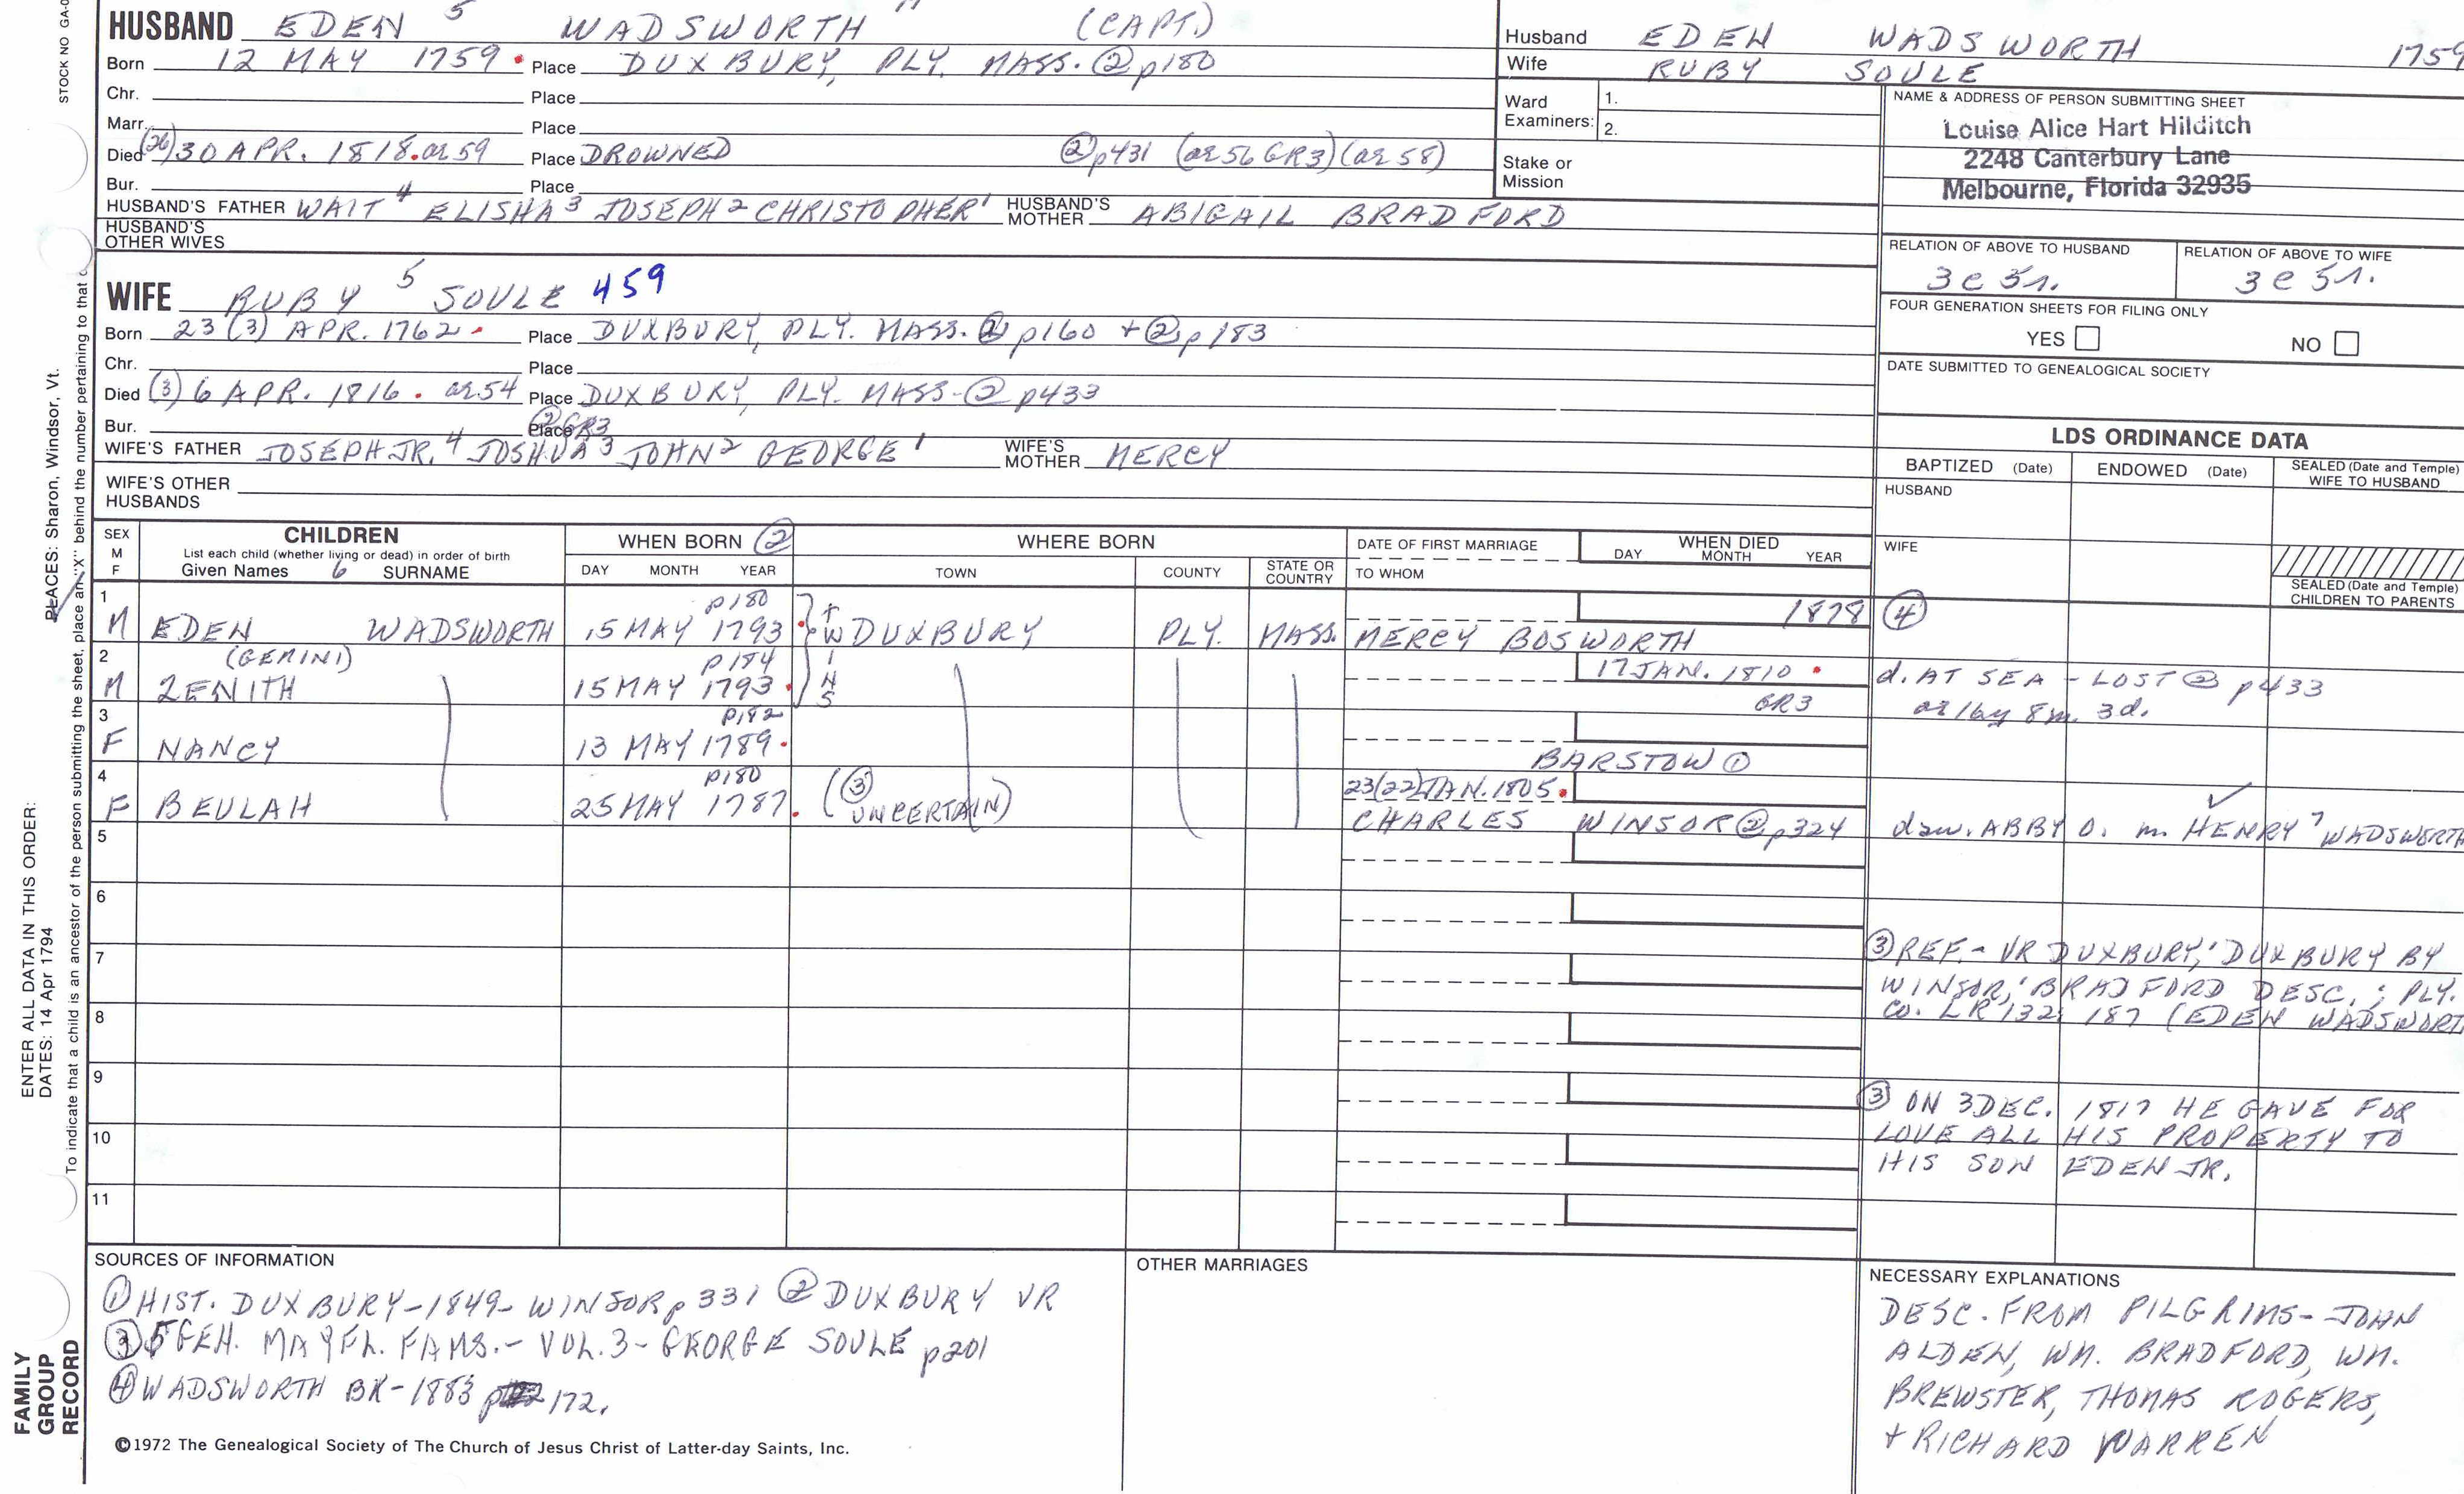 HUSBAND EDEN 5 WADSWORTH (CAPT.)
Born 12 MAY 1759 Place DUXBURY, PLY. MASS. ② p180
Chr. Place
Marr. Place
Died (26) 30 APR. 1818. ae 59 Place DROWNED ② p431 (ae 56 GR3) (ae 58)
Bur. Place
HUSBAND'S FATHER WAIT 4 ELISHA 3 JOSEPH 2 CHRISTOPHER 1 HUSBAND'S MOTHER ABIGAIL BRADFORD
HUSBAND'S OTHER WIVES
WIFE RUBY 5 SOULE 459
Born 23 (3) APR. 1762 Place DUXBURY, PLY. MASS. ② p160 + ② p183
Chr. Place
Died (3) 6 APR. 1816. ae 54 Place DUXBURY, PLY. MASS- ② p433
Bur. Place ② GR3
WIFE'S FATHER JOSEPH JR. 4 JOSHUA 3 JOHN 2 GEORGE 1 WIFE'S MOTHER MERCY
WIFE'S OTHER HUSBANDS
Husband EDEN WADSWORTH 1759
Wife RUBY SOULE
Ward Examiners: 1.
2.
Stake or Mission
NAME & ADDRESS OF PERSON SUBMITTING SHEET
Louise Alice Hart Hilditch
2248 Canterbury Lane
Melbourne, Florida 32935
RELATION OF ABOVE TO HUSBAND RELATION OF ABOVE TO WIFE
3 C 5 r. 3 C 5 r.
FOUR GENERATION SHEETS FOR FILING ONLY
YES NO
DATE SUBMITTED TO GENEALOGICAL SOCIETY
LDS ORDINANCE DATA
BAPTIZED (Date) ENDOWED (Date) SEALED (Date and Temple) WIFE TO HUSBAND
HUSBAND
WIFE
SEALED (Date and Temple) CHILDREN TO PARENTS
SEX M F CHILDREN WHEN BORN ② WHERE BORN DATE OF FIRST MARRIAGE WHEN DIED
List each child (whether living or dead) in order of birth DAY MONTH YEAR
Given Names 6 SURNAME DAY MONTH YEAR TOWN COUNTY STATE OR COUNTRY TO WHOM
p180 1878 ④
1 M EDEN WADSWORTH 15 MAY 1793 TWINS DUXBURY PLY. MASS. MERCY BOSWORTH
(GEMINI) p184 17 JAN. 1810
2 M ZENITH 15 MAY 1793 d. AT SEA - LOST ② p433
GR3 ae 16y 8m. 3d.
p182
3 F NANCY 13 MAY 1789 BARSTOW ①
p180 23(22) JAN. 1805
4 F BEULAH 25 MAY 1787 (③ UNCERTAIN) CHARLES WINSOR ② p324 dau. ABBY O. m. HENRY 7 WADSWORTH
5
6
7
8
9
10
11
③ REF.- VR DUXBURY; 'DUXBURY BY
WINSOR;' BRADFORD DESC.; PLY.
CO. LR 132: 187 (EDEN WADSWORT
③ ON 3 DEC. 1817 HE GAVE FOR
LOVE ALL HIS PROPERTY TO
HIS SON EDEN JR.
SOURCES OF INFORMATION
① HIST. DUXBURY-1849- WINSOR p 331 ② DUXBURY VR
③ 5 GEN. MAYFL. FAMS.- VOL. 3- GEORGE SOULE p201
④ WADSWORTH BK-1883 p 172.
©1972 The Genealogical Society of The Church of Jesus Christ of Latter-day Saints, Inc.
OTHER MARRIAGES
NECESSARY EXPLANATIONS
DESC. FROM PILGRIMS- JOHN
ALDEN, WM. BRADFORD, WM.
BREWSTER, THOMAS ROGERS,
+ RICHARD WARREN
STOCK NO GA-0
PLACES: Sharon, Windsor, Vt.
To indicate that a child is an ancestor of the person submitting the sheet, place an "X" behind the number pertaining to that c
ENTER ALL DATA IN THIS ORDER:
DATES: 14 Apr 1794
FAMILY
GROUP
RECORD